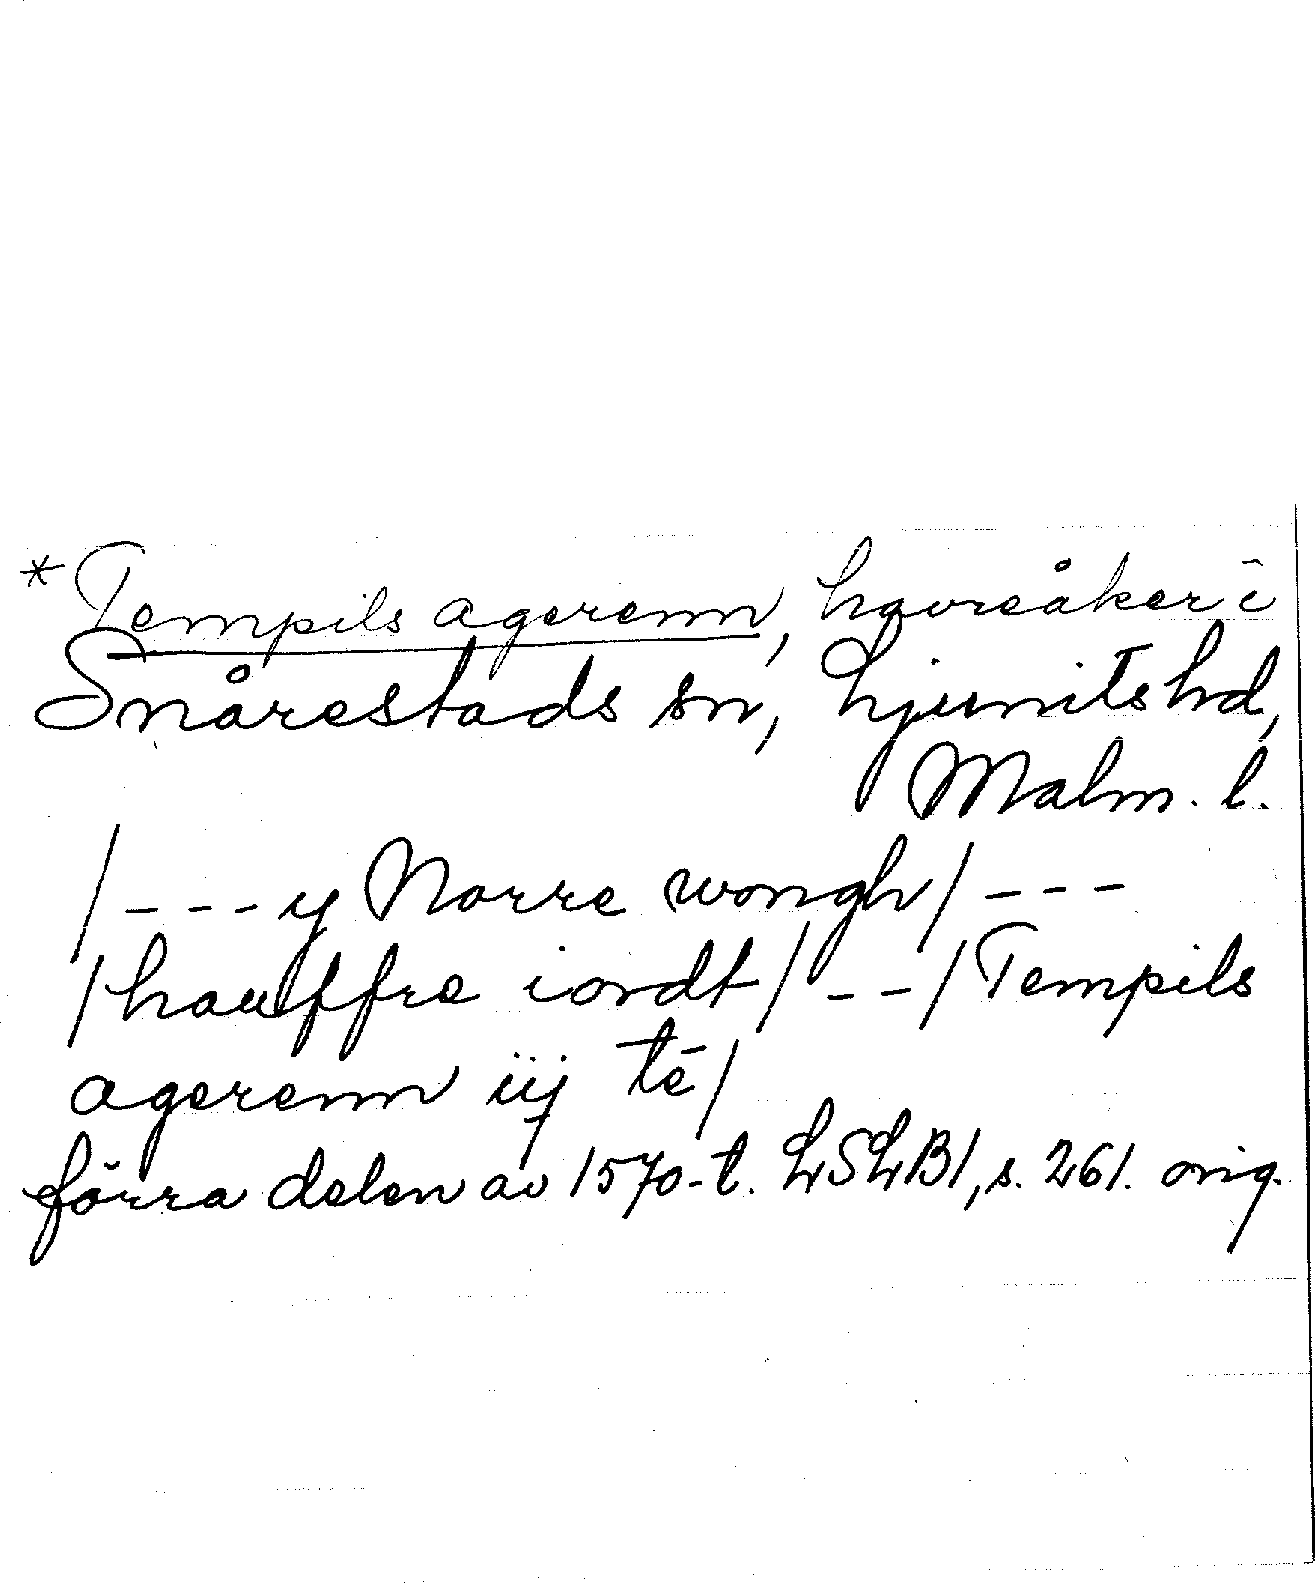 *Tempils agerenn, havreåker i
Snårestads sn, Ljunits hd,
Malm. l.
/---y Norre wongh/---
/hauffre iordt/--/Tempils
agerenn iij tē/
förra delen av 1570-t. LSLB1, s. 261. orig.